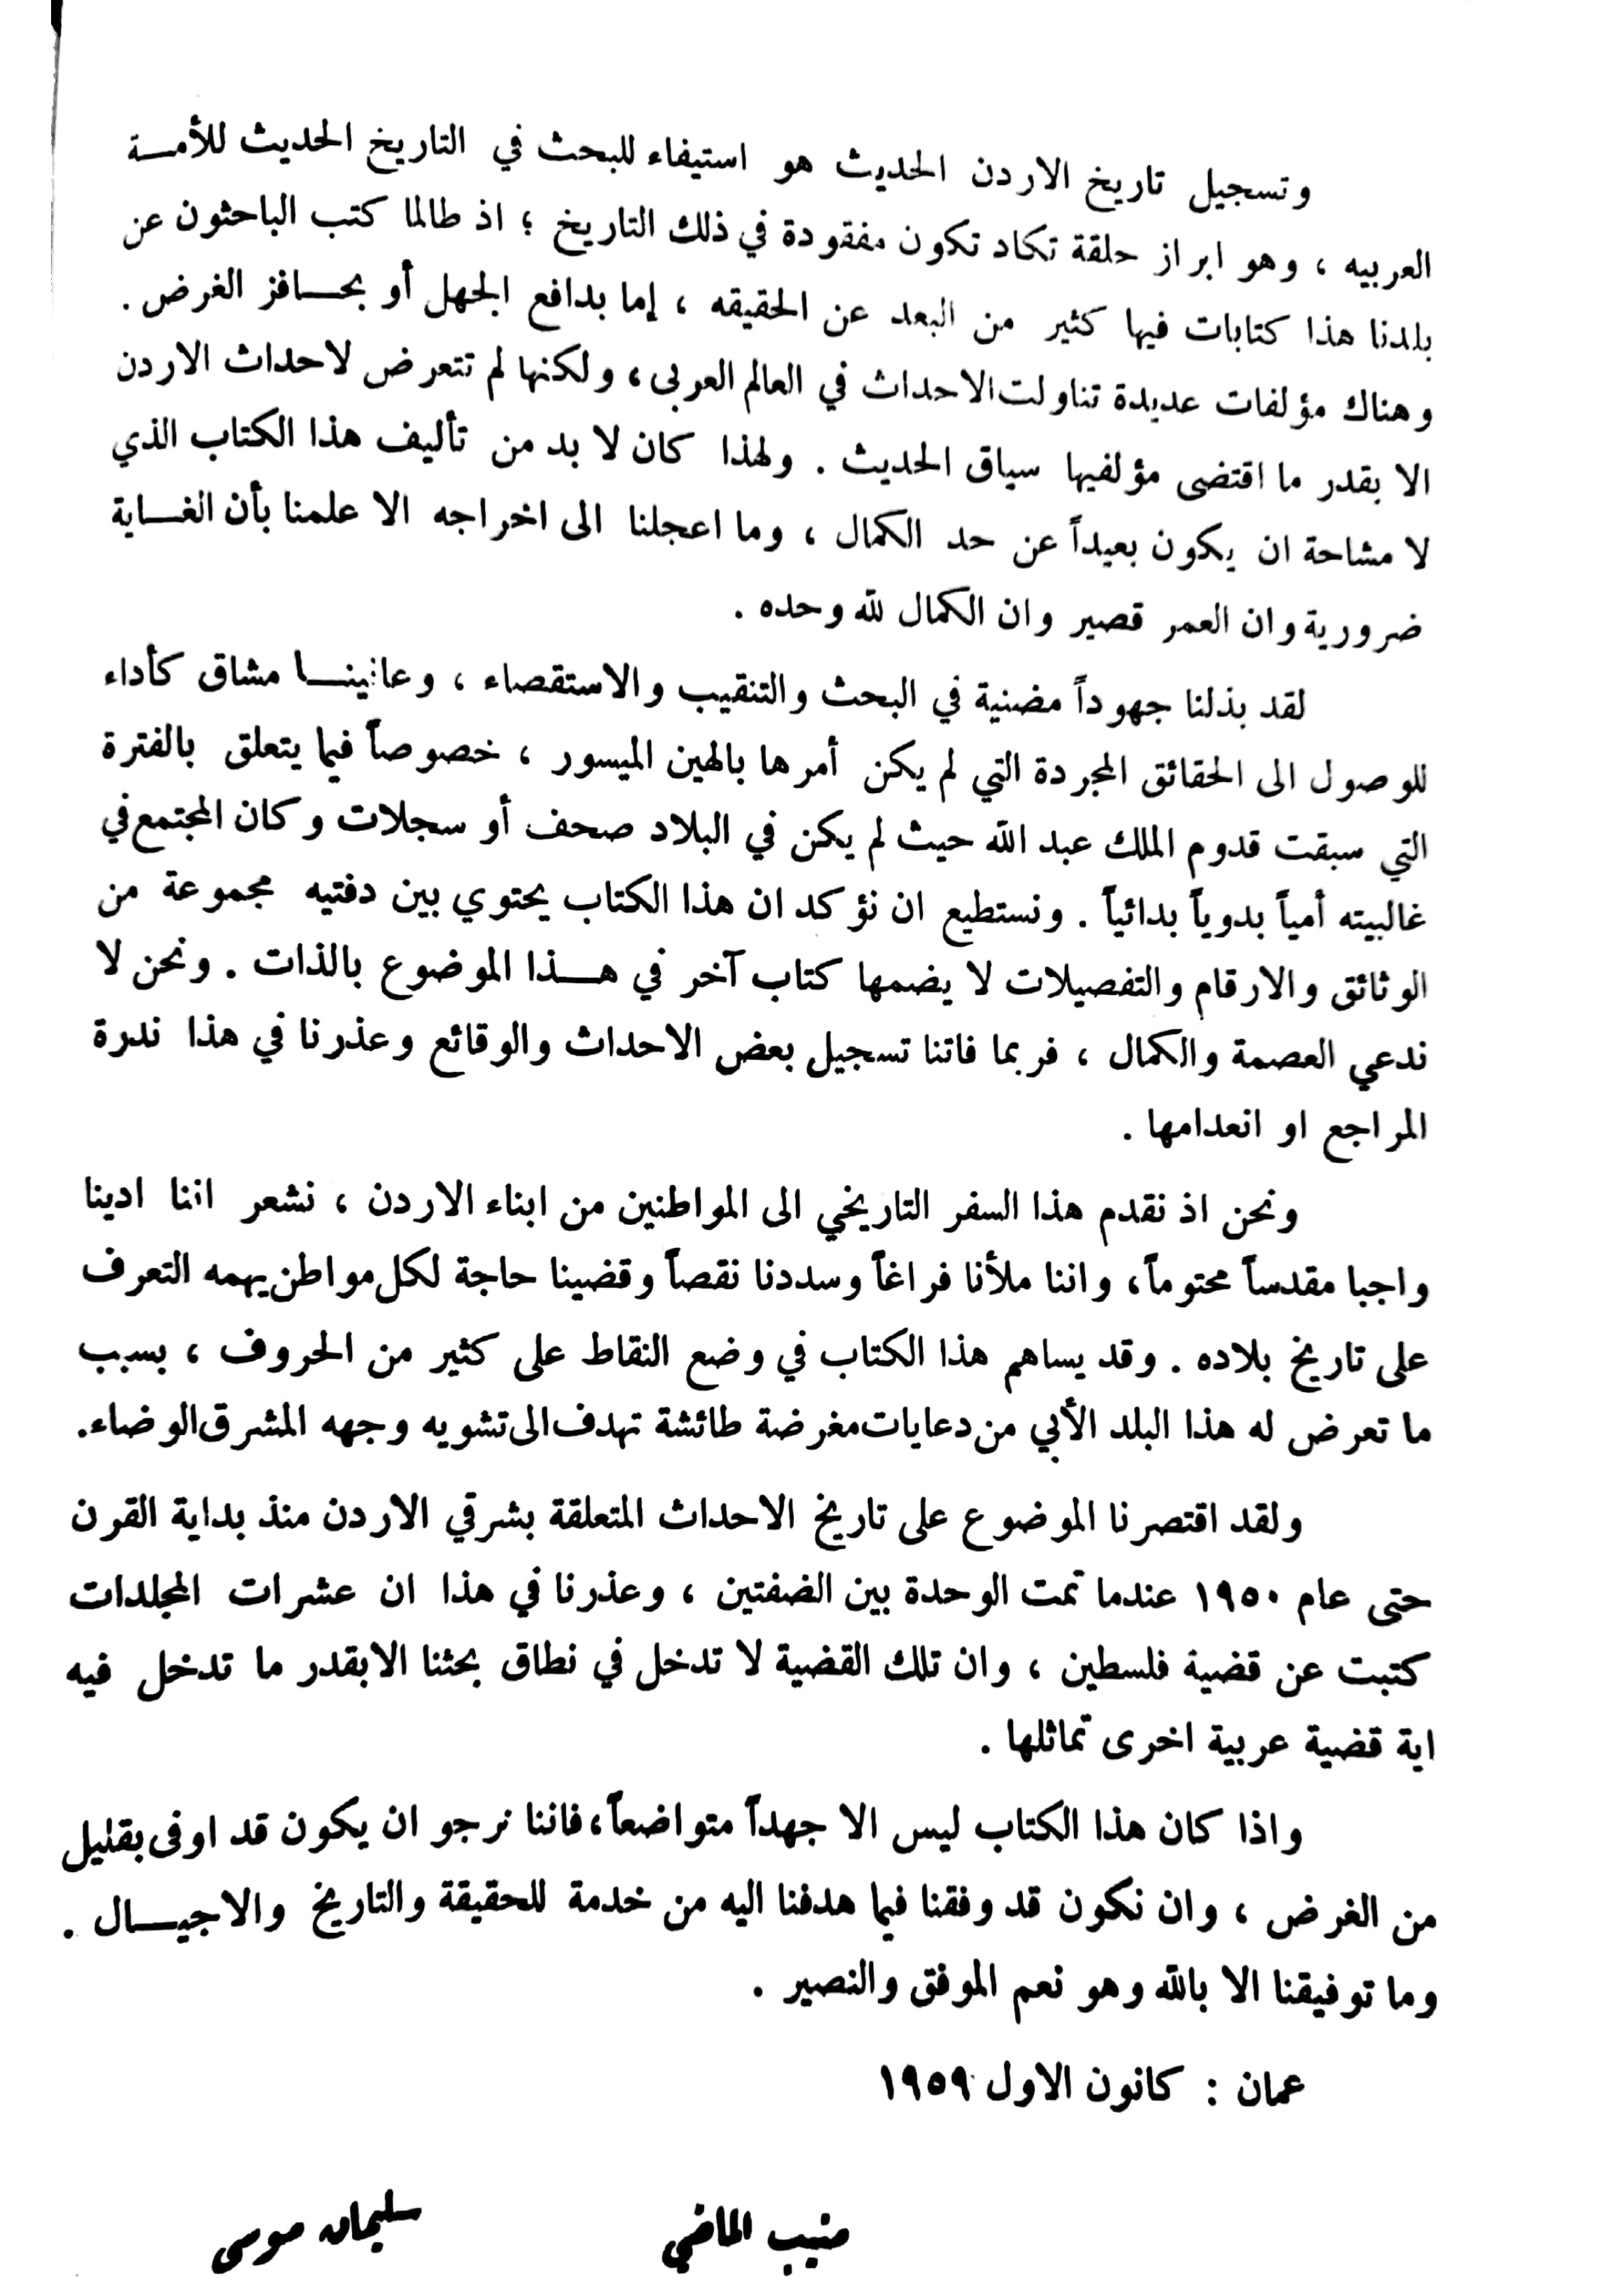 وتسجيل تاريخ الاردن الحديث هو استيفاء للبحث في التاريخ الحديث للأمــة
العربيه ، وهو ابراز حلقة تكاد تكون مفقودة في ذلك التاريخ ؛ اذ طالما كتب الباحثون عن
بلدنا هذا كتابات فيها كثير من البعد عن الحقيقه ، إما بدافع الجهل أو بحــافز الغرض .
وهناك مؤلفات عديدة تناولت الاحداث في العالم العربى ، ولكنها لم تتعرض لاحداث الاردن
الا بقدر ما اقتضى مؤلفيها سياق الحديث . ولهذا كان لا بد من تأليف هذا الكتاب الذي
لا مشاحة ان يكون بعيداً عن حد الكمال ، وما اعجلنا الى اخراجه الا علمنا بأن الغــاية
ضرورية وان العمر قصير وان الكمال لله وحده .
لقد بذلنا جهوداً مضنية في البحث والتنقيب والاستقصاء ، وعانينــا مشاق كأداء
للوصول الى الحقائق المجردة التي لم يكن أمرها بالهين الميسور ، خصوصاً فيما يتعلق بالفترة
التي سبقت قدوم الملك عبد الله حيث لم يكن في البلاد صحف أو سجلات وكان المجتمع في
غالبيته أمياً بدوياً بدائياً . ونستطيع ان نؤكد ان هذا الكتاب يحتوي بين دفتيه مجموعة من
الوثائق والارقام والتفصيلات لا يضمها كتاب آخر في هــذا الموضوع بالذات . ونحن لا
ندعي العصمة والكمال ، فربما فاتنا تسجيل بعض الاحداث والوقائع وعذرنا في هذا ندرة
المراجع او انعدامها .
ونحن اذ نقدم هذا السفر التاريخي الى المواطنين من ابناء الاردن ، نشعر اننا ادينا
واجبا مقدساً محتوماً ، واننا ملأنا فراغاً وسددنا نقصاً وقضينا حاجة لكل مواطن يهمه التعرف
على تاريخ بلاده . وقد يساهم هذا الكتاب في وضع النقاط على كثير من الحروف ، بسبب
ما تعرض له هذا البلد الأبي من دعايات مغرضة طائشة تهدف الى تشويه وجهه المشرق الوضاء.
ولقد اقتصرنا الموضوع على تاريخ الاحداث المتعلقة بشرقي الاردن منذ بداية القرن
حتى عام ١٩٥٠ عندما تمت الوحدة بين الضفتين ، وعذرنا في هذا ان عشرات المجلدات
كتبت عن قضية فلسطين ، وان تلك القضية لا تدخل في نطاق بحثنا الا بقدر ما تدخل فيه
اية قضية عربية اخرى تماثلها .
واذا كان هذا الكتاب ليس الا جهداً متواضعاً ، فاننا نرجو ان يكون قد اوفى بقليل
من الغرض ، وان نكون قد وفقنا فيما هدفنا اليه من خدمة للحقيقة والتاريخ والاجيــال .
وما توفيقنا الا بالله وهو نعم الموفق والنصير .
عمان : كانون الاول ١٩٥٩
منيب الماضي سليمان موسى